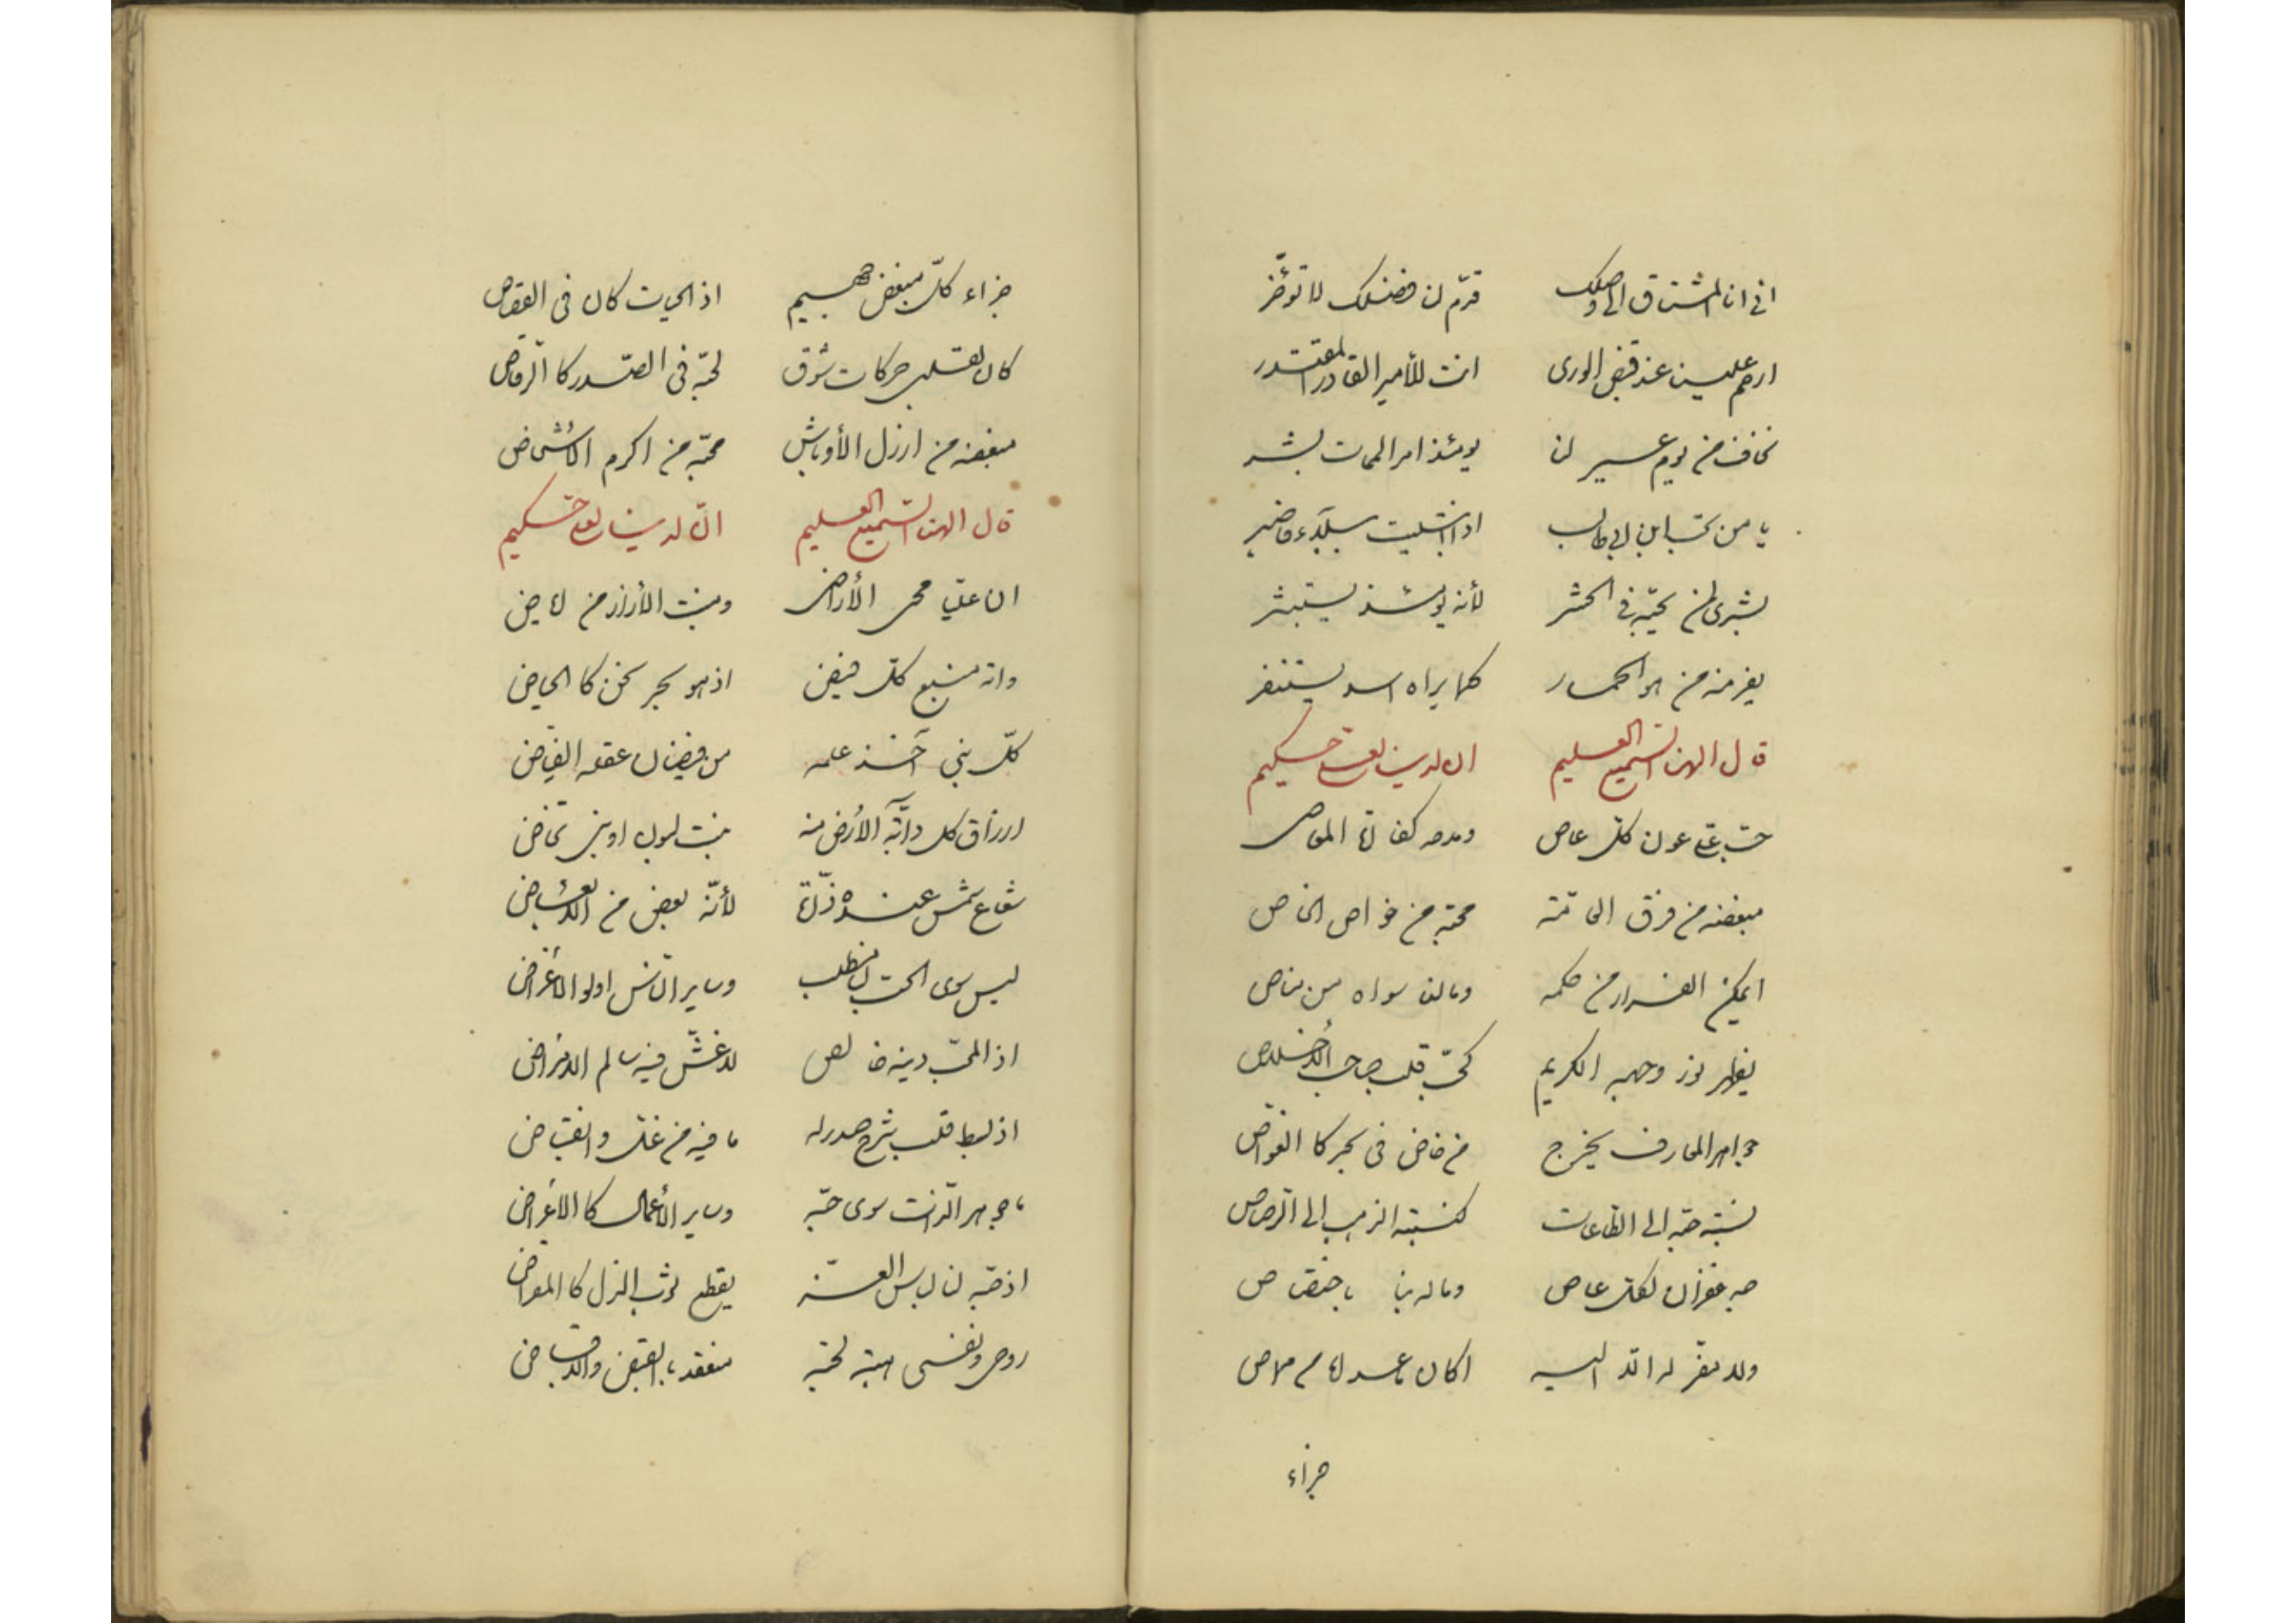 انی انا المشتاق الی وصلک قدّم لنا فضلک لا تؤخّر
ارحم علینا عند قبض الوری انت للأمیر القادر المقتدر
نخاف من یوم عسیر لنا یومئذ امر الممات یشر
یا من تحب ابن ابی طالب اذا ابتلیت ببلاء فاصبر
بشری لمن یحبّه فی الحشر لأنه یومئذ یستبشر
یفر منه من هو الحمار کما یراه اسد یستنفر
قال الهنا السمیع العلیم ان لدینا لعلی حکیم
حبّ علی عون کلّ عاص ومدحه کفارة المعاص
مبغضه من فرق محبّه من خواص الخاص
ایمکن الفرار من حکمه وما لنا سواه من مناص
یظهر نور وجهه الکریم کحبّ قلب صاحب الاخلاص
جواهر المعارف یخرج من خاض فی بحر کالغوّاص
نسبة حبّه الی الطاعات کنسبة الذهب الی الرّصاص
حبه غفران لکلّ عاص وماله باختصاص
ولا مفرّ له الّا الیه اکان عبد من مولاه
جزاء
جزاء کلّ مبغض جحیم اذ الحیات کان فی القصاص
کان لقلبی حرکات شوق لحبّه فی الصّدر کالرّقاص
مبغضه من ارذل الأوباش محبّه من اکرم الاشخاص
قال الهنا السمیع العلیم انّ لدینا لعلی حکیم
ان علیّا محیی الأراضی ومنبت الأرزاز من
وانه منبع کلّ فیض اذ هو بحر نحن کالحیاض
کلّ نبی اخذ علمه من فیضان عقله الفیّاض
ارزاق کل دابّة الأرض منه بنت لبون او بنی مخاض
شعاع شمس عنده ذرّة لأنّه بعض من الابعاض
لیس سوی الحبّ لی مطلب وسایر النّاس اولو الاغراض
اذ المحبّ دینه خالص لا غشّ فیه سالم الامراض
اذ بسط قلب شرح صدر له ما فیه من غلّ وانقباض
ما جوهر الذات سوی حبّه وسایر الأعمال کالاعراض
اذ حبّه لنا لباس العزّ یقطع ثوب الذل کالمقراض
روحی ونفسی هبة لحبّه منعقد بالقبض والاقباض